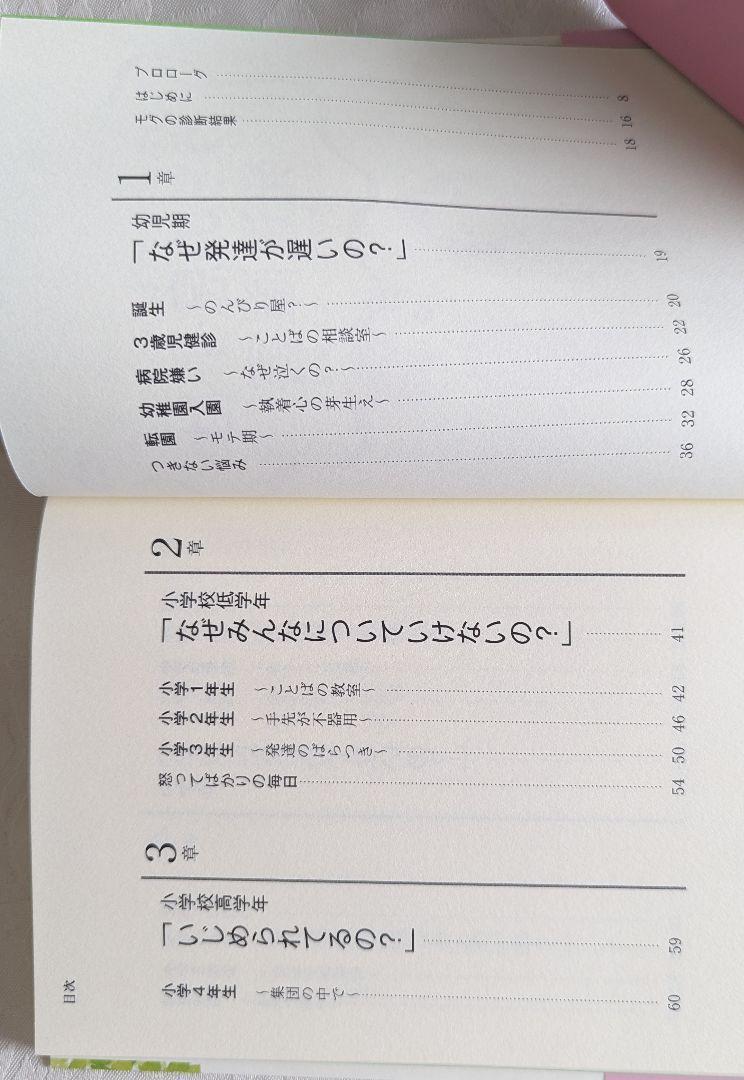 プロローグ 8
はじめに 16
モグの診断結果 18
1章
幼児期
「なぜ発達が遅いの？」 19
誕生 ～のんびり屋？～ 20
3歳児健診 ～ことばの相談室～ 22
病院嫌い ～なぜ泣くの？～ 26
幼稚園入園 ～執着心の芽生え～ 28
転園 ～モテ期～ 32
つきない悩み 36
2章
小学校低学年
「なぜみんなについていけないの？」 41
小学1年生 ～ことばの教室～ 42
小学2年生 ～手先が不器用～ 46
小学3年生 ～発達のばらつき～ 50
怒ってばかりの毎日 54
3章
小学校高学年
「いじめられてるの？」 59
小学4年生 ～集団の中で～ 60
目次